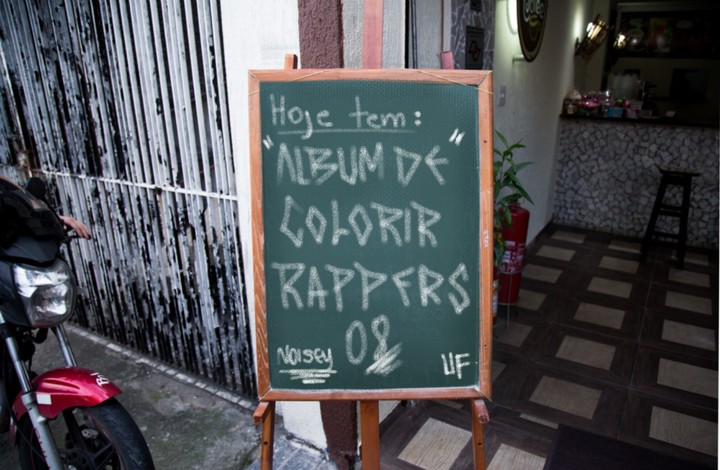 Hoje tem:
"ALBUM DE"
COLORIR
RAPPERS
08
NOISEY
UF